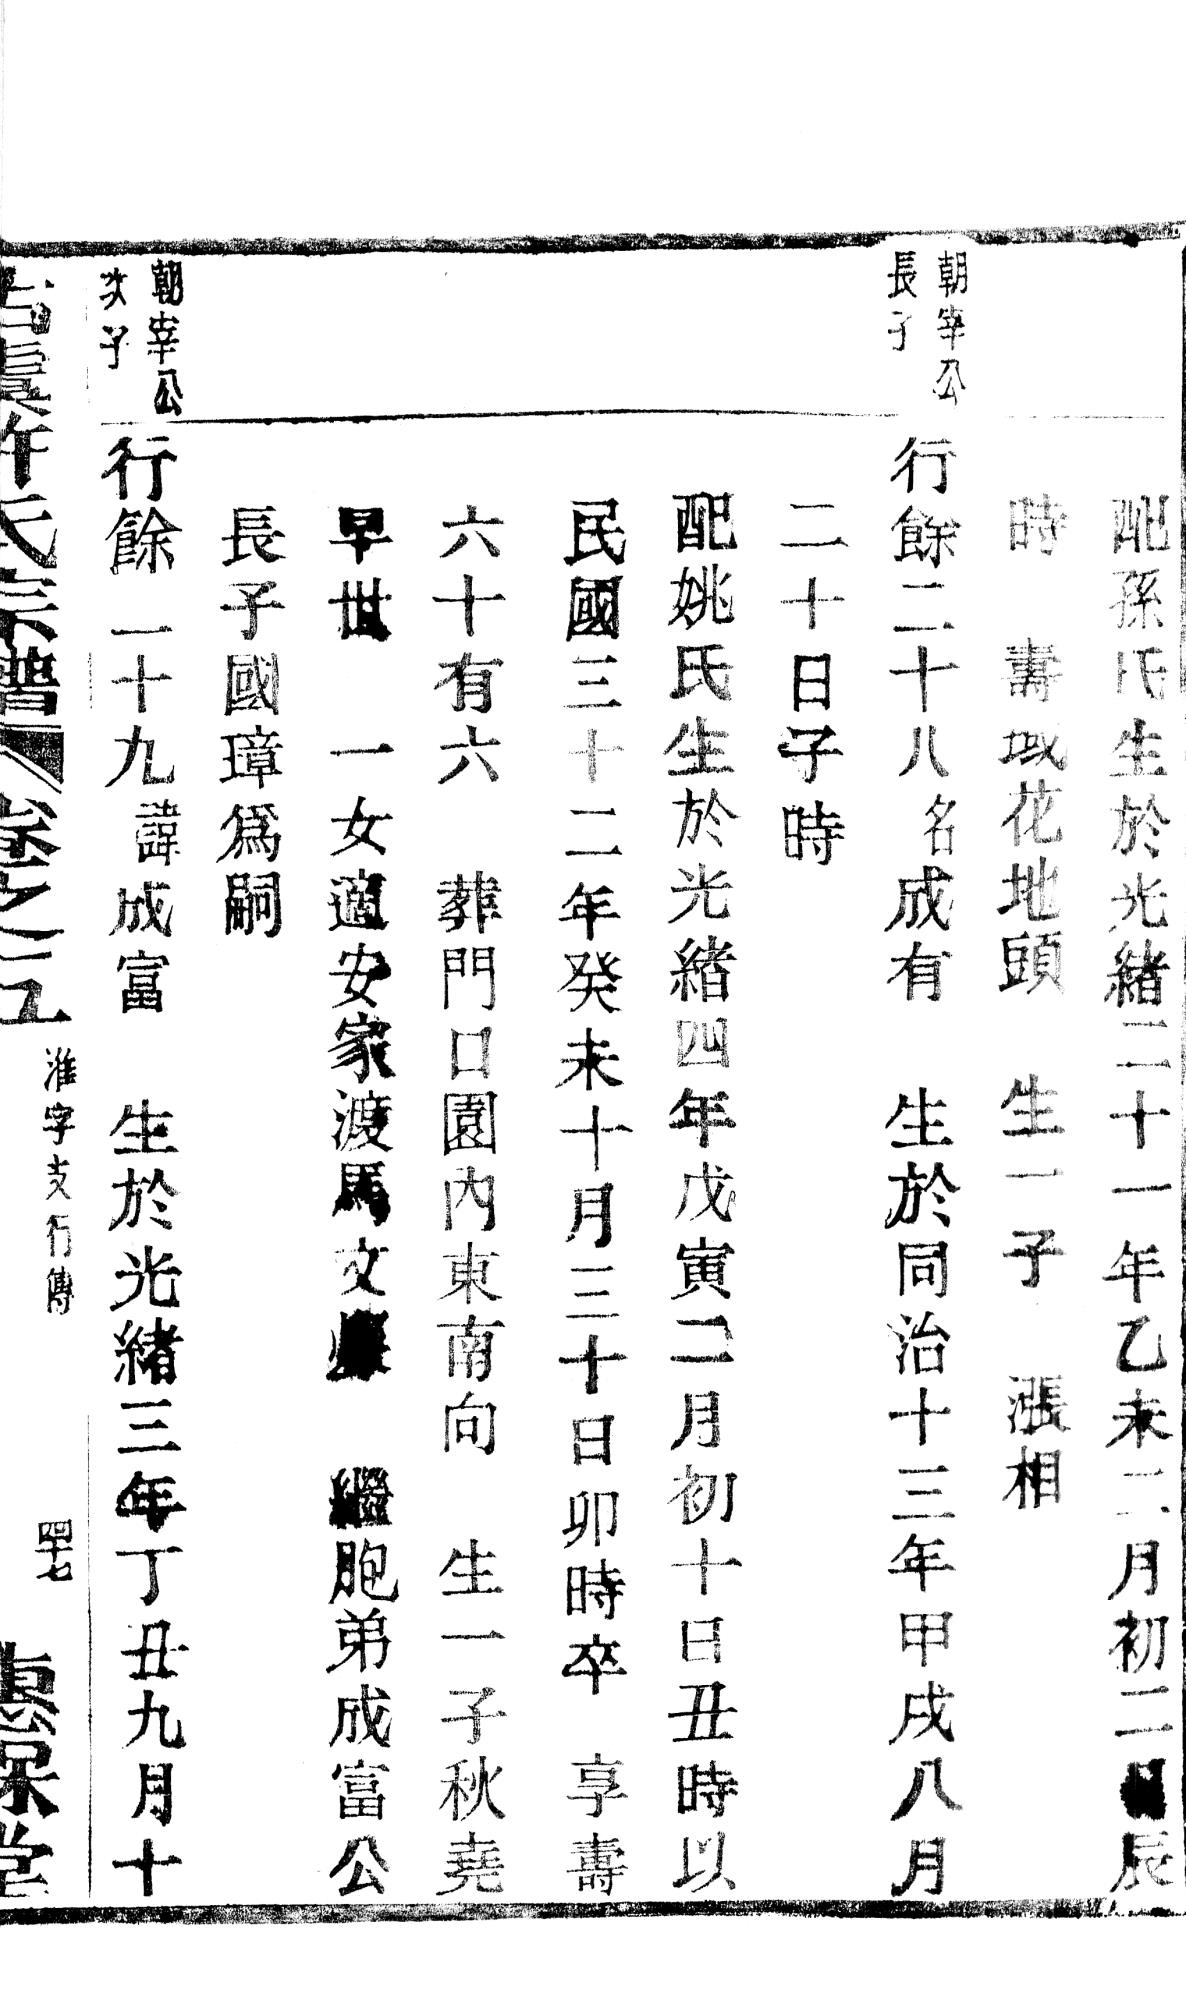 配孫氏生於光緒二十一年乙未二月初二日辰
時　壽域花地頭　生一子　漲相
朝宰公
長子
行餘二十八名成有　生於同治十三年甲戌八月
二十日子時
配姚氏生於光緒四年戊寅二月初十日丑時以
民國三十二年癸未十月三十日卯時卒　享壽
六十有六　葬門口園內東南向　生一子秋堯
早世　一女適安家渡馬文　繼胞弟成富公
長子國璋爲嗣
朝宰公
次子
行餘二十九諱成富　生於光緒三年丁丑九月十
虞許氏宗譜　卷之二　淮字支行傳　四十七　惠保堂